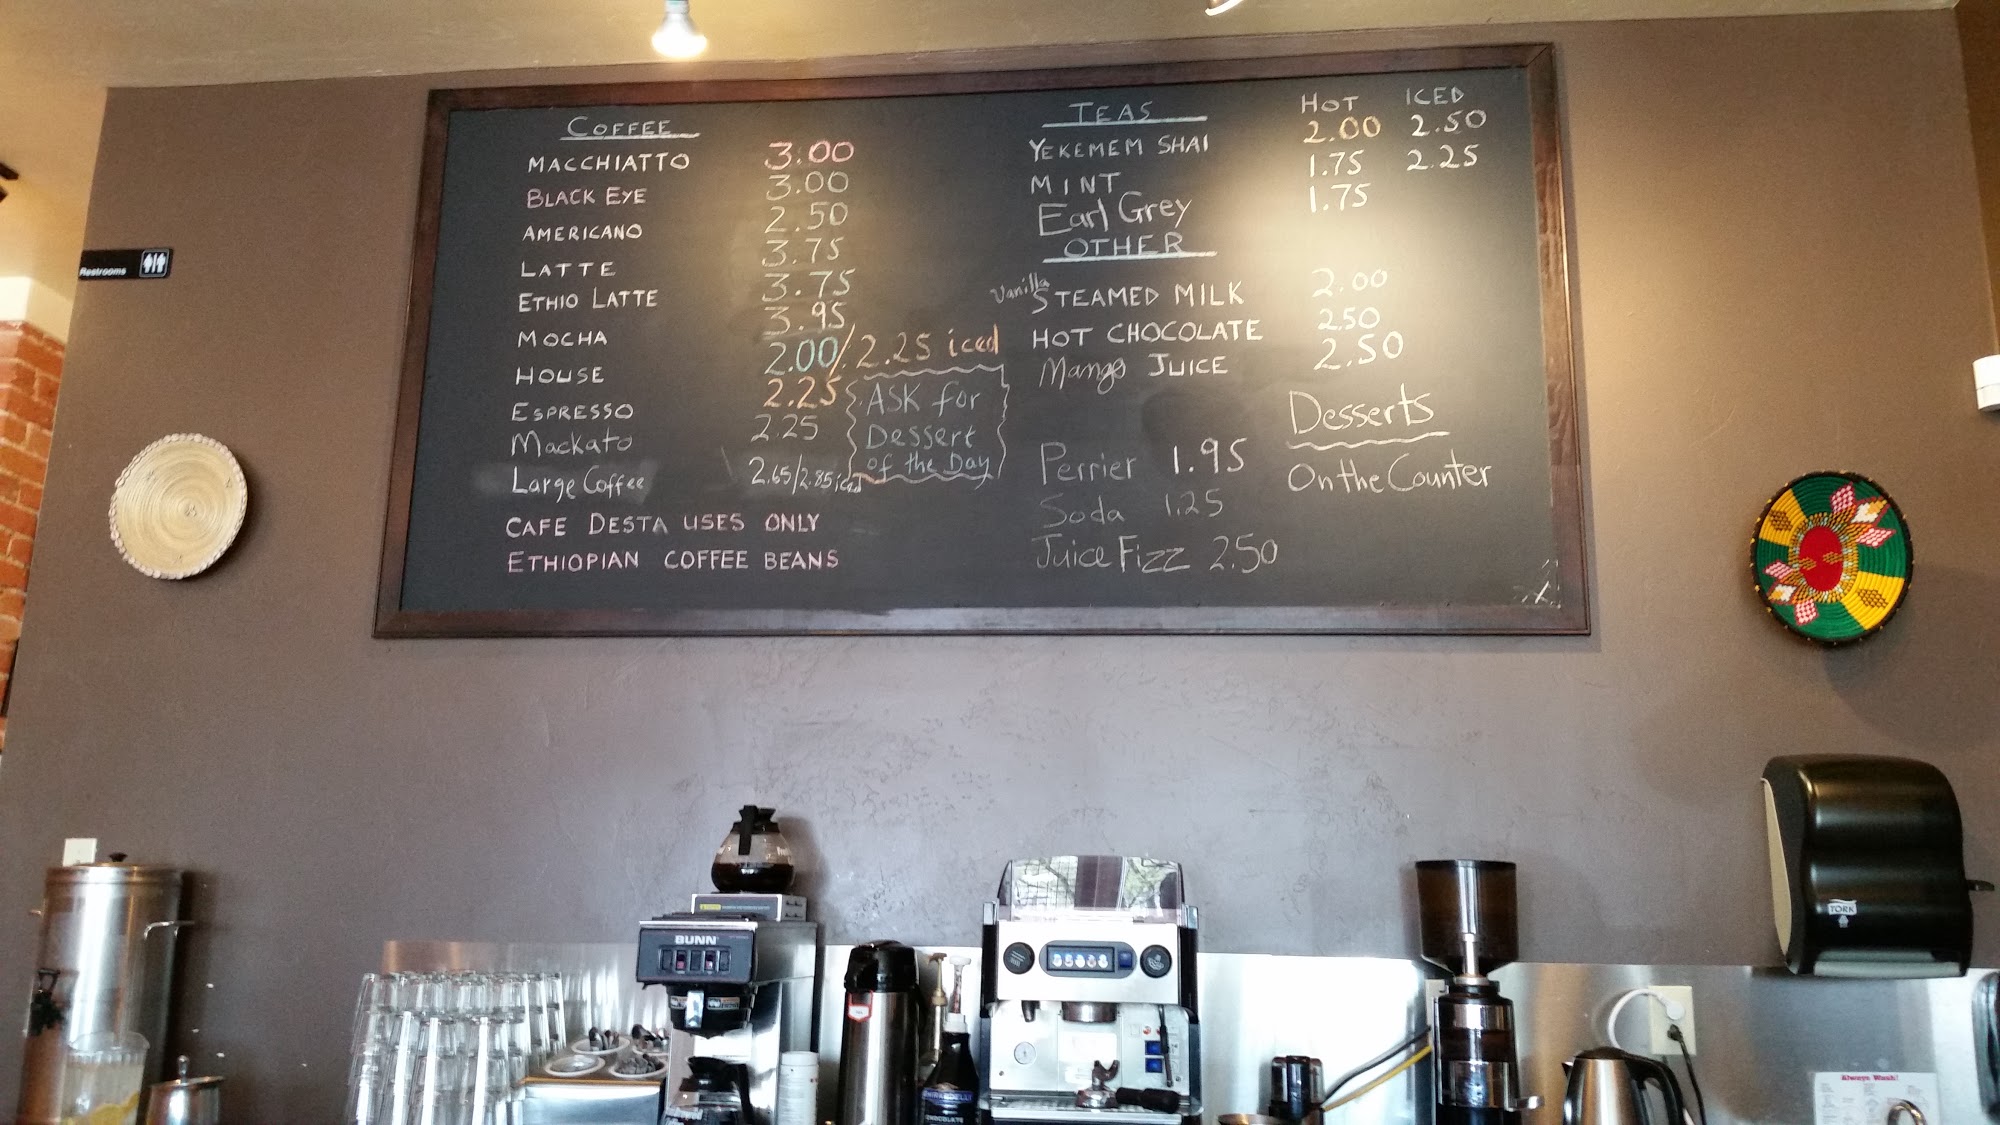 COFFEE
MACCHIATTO 3.00
BLACK EYE 3.00
AMERICANO 2.50
LATTE 3.75
ETHIO LATTE 3.75
MOCHA 3.95
HOUSE 2.00/2.25 iced
ESPRESSO 2.25
Mackato 2.25
Large Coffee 2.65/2.85 iced
CAFE DESTA USES ONLY
ETHIOPIAN COFFEE BEANS
ASK for
Dessert
of the Day
TEAS HOT ICED
YEKEMEM SHAI 2.00 2.50
MINT 1.75 2.25
Earl Grey 1.75
OTHER
Vanilla
STEAMED MILK 2.00
HOT CHOCOLATE 2.50
Mango JUICE 2.50
Perrier 1.95
Soda 1.25
Juice Fizz 2.50
Desserts
On the Counter
Restrooms
BUNN
TORK
GHIRARDELLI
CHOCOLATE
Always Wash!